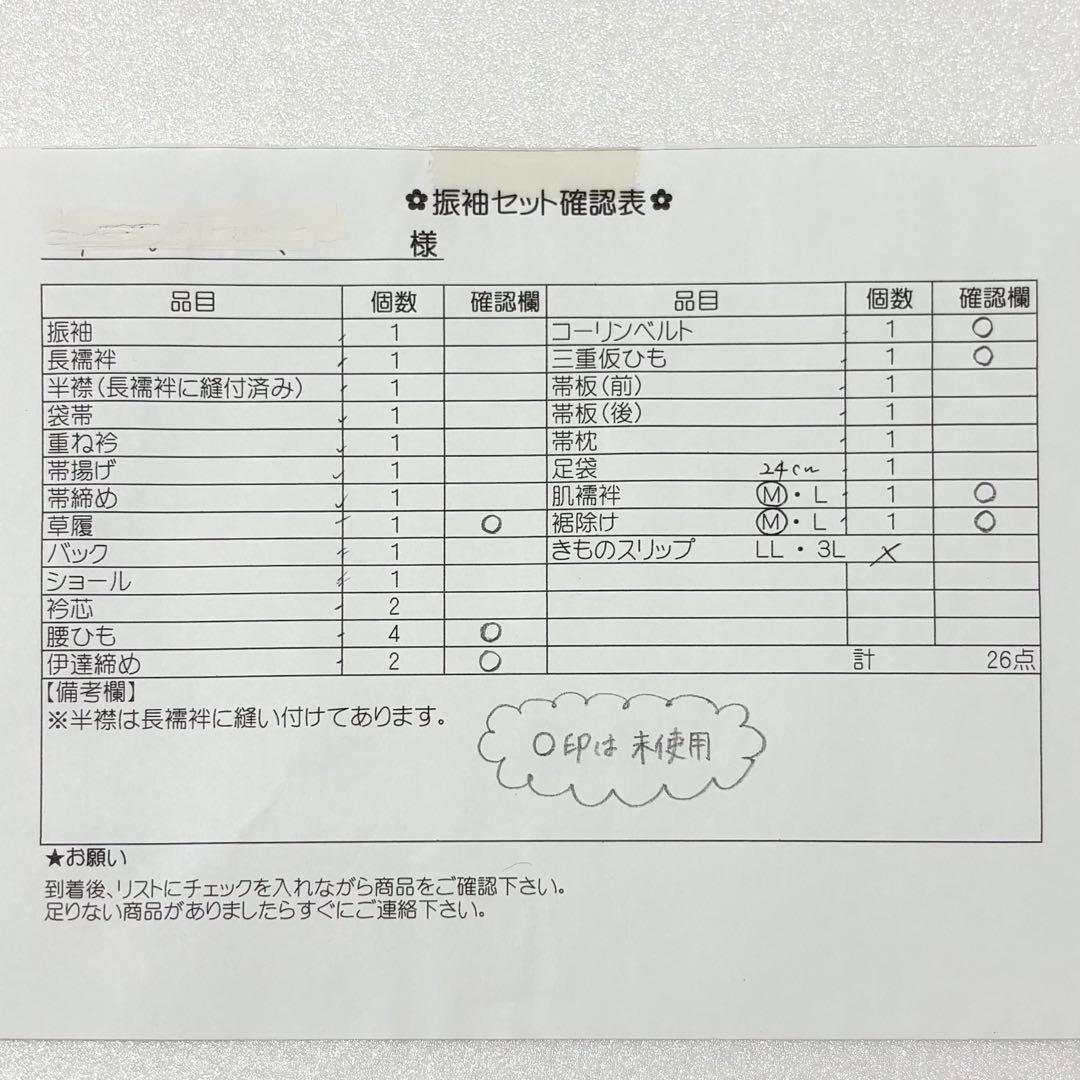 ✿振袖セット確認表✿
様
品目 個数 確認欄 品目 個数 確認欄
振袖 1 コーリンベルト 1 ○
長襦袢 1 三重仮ひも 1 ○
半襟(長襦袢に縫付済み) 1 帯板(前) 1
袋帯 1 帯板(後) 1
重ね衿 1 帯枕 1
帯揚げ 1 足袋 24cm 1
帯締め 1 肌襦袢 Ⓜ・L 1 ○
草履 1 ○ 裾除け Ⓜ・L 1 ○
バック 1 きものスリップ LL・3L ×
ショール 1
衿芯 2
腰ひも 4 ○
伊達締め 2 ○ 計 26点
【備考欄】
※半襟は長襦袢に縫い付けてあります。
○印は未使用
★お願い
到着後、リストにチェックを入れながら商品をご確認下さい。
足りない商品がありましたらすぐにご連絡下さい。